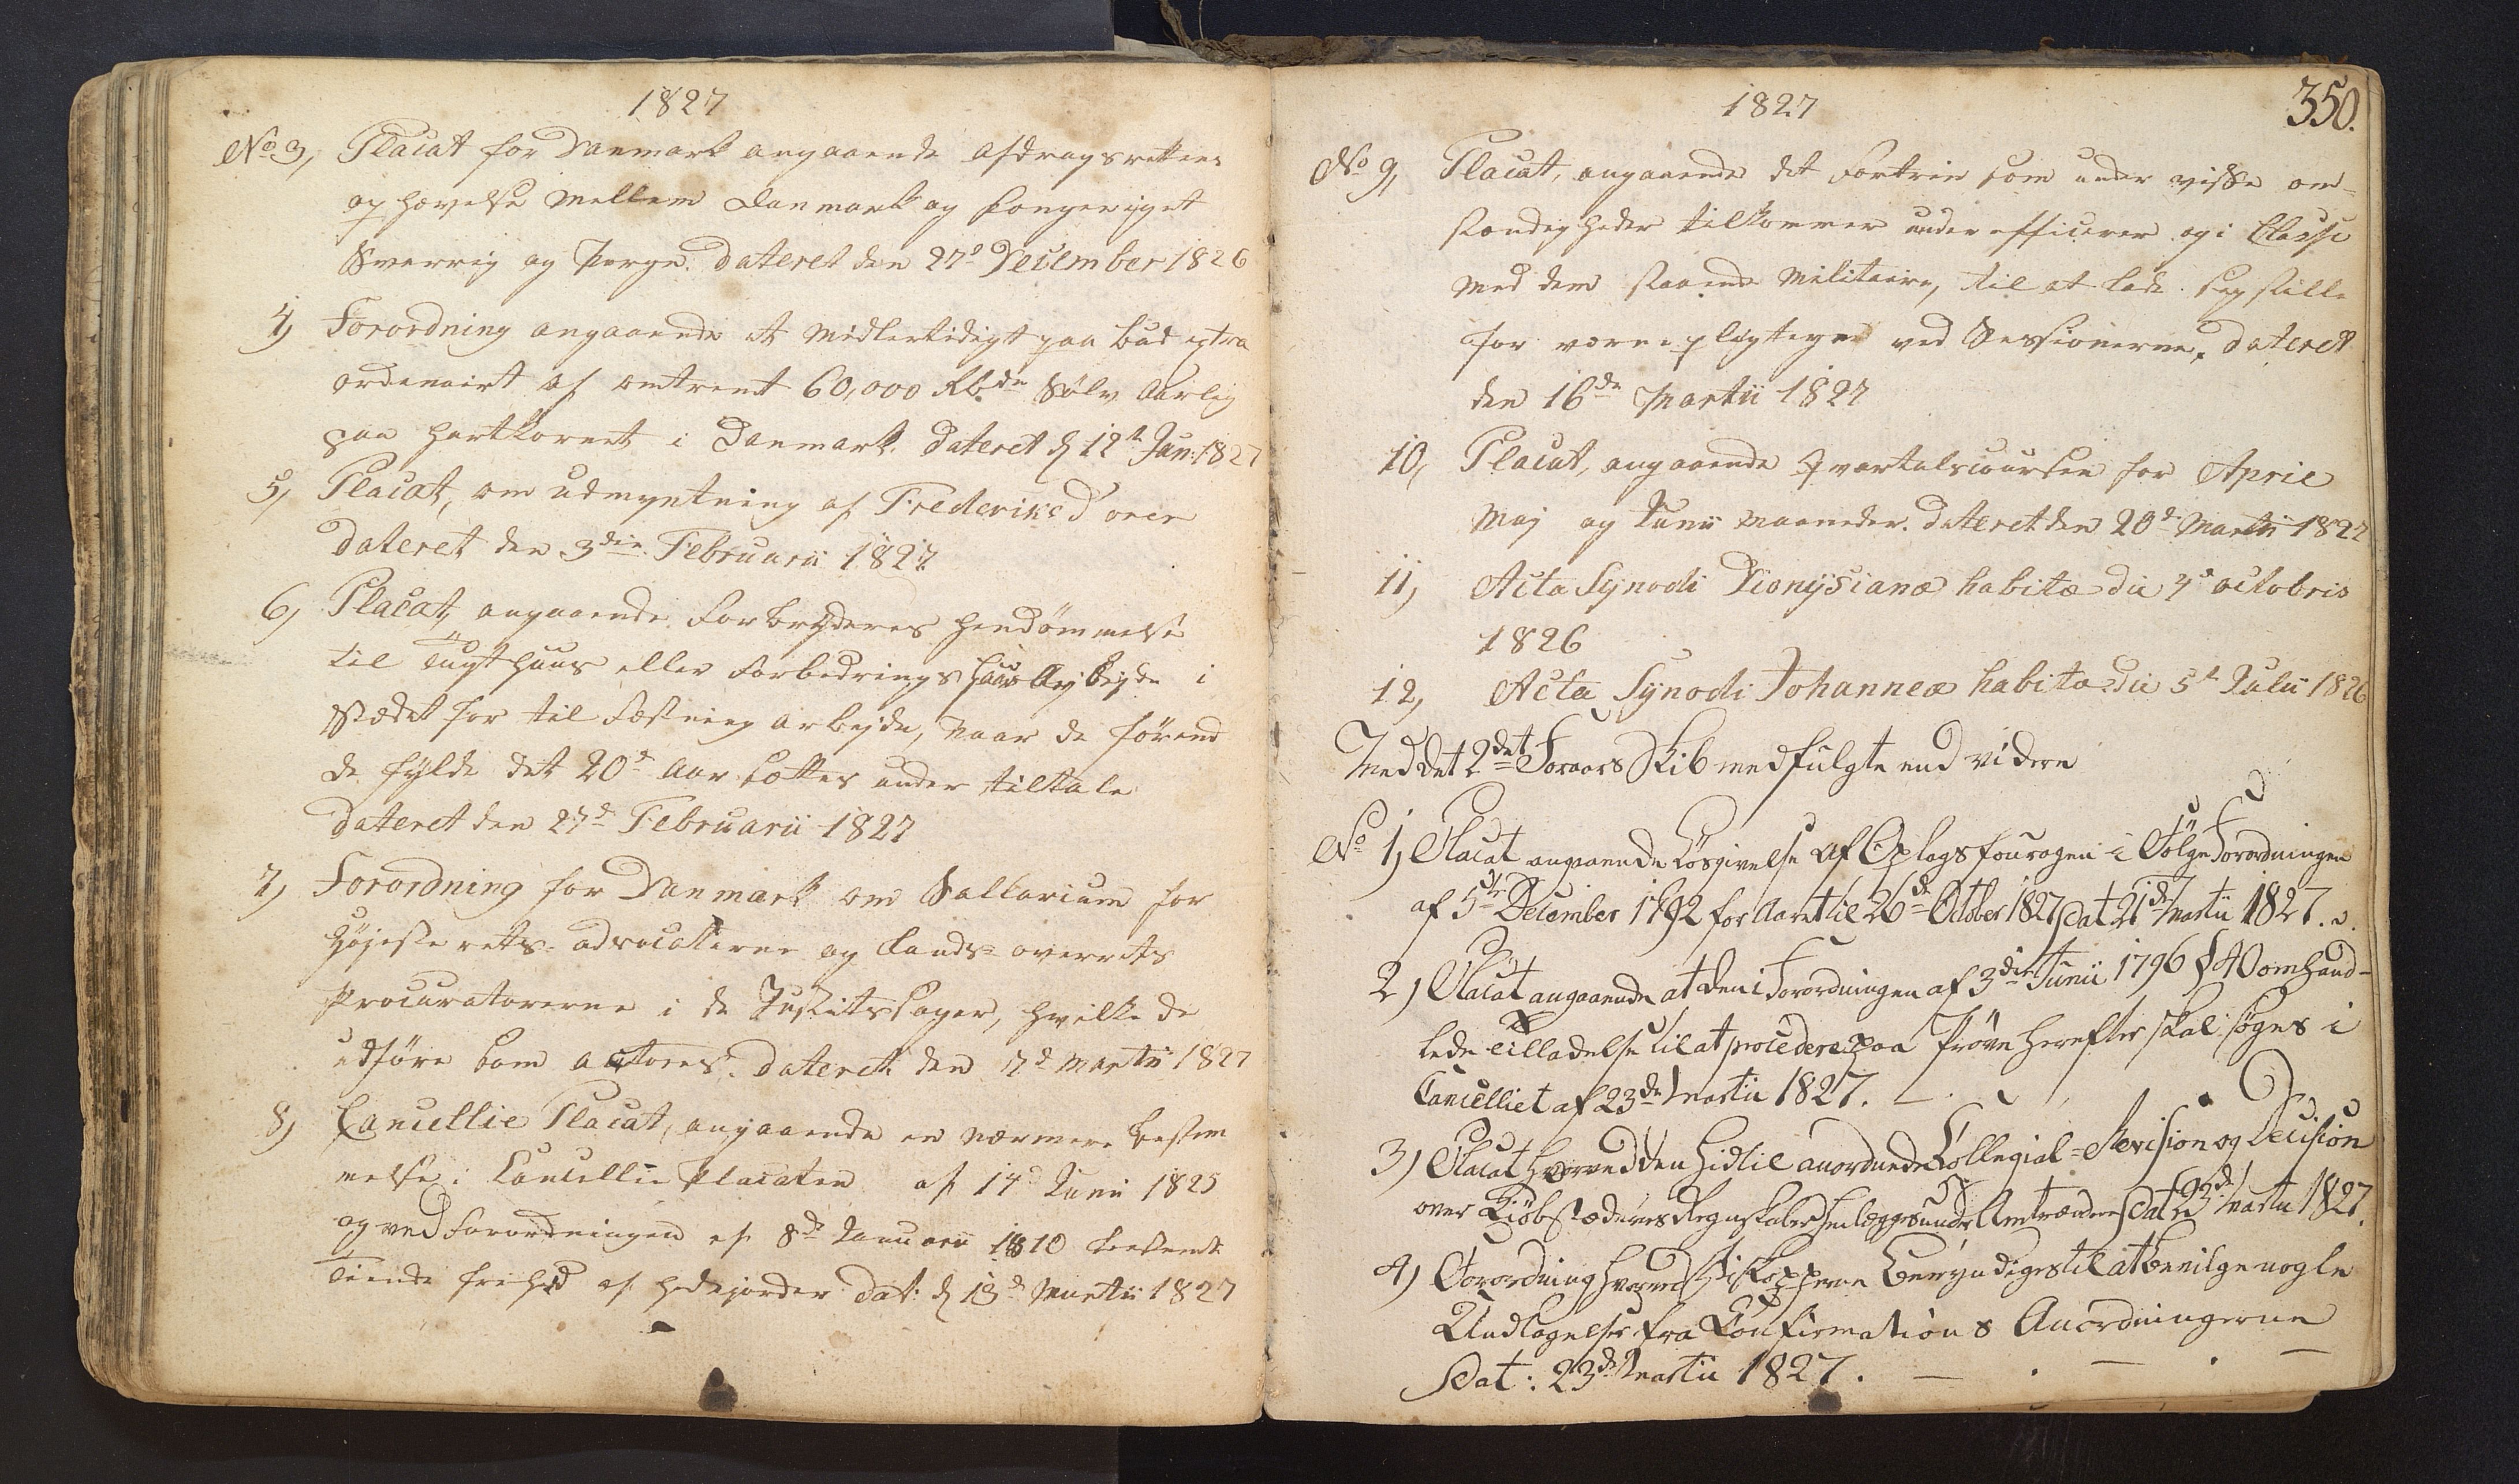 1827
No 3, Placat for Danmark angaaende afdragsrettens
ophævelse mellem Danmark og kongeriget
Sverrig og Norge. dateret den 27de December 1826
4) Forordning angaaende et Midlertidigt paabud extra
ordenairt af omtrent 60,000 Rbdr Sølv aarlig
paa hartkornet i Danmark. dateret d 12te Jan: 1827
5, Placat, om udmyntning af Frederiks d'orer
dateret den 3die Februarii 1827
6, Placat, angaaende Forbryderes hendömmelse
til Tugthuus eller Forbedringshuus Arbejde i
Stædet for til Fæstning arbejde, naar de förend
de fylde det 20de Aar sættes under tiltale
dateret den 27de Februarii 1827
7, Forordning for Danmark om Sallarium for
Højeste rets-advocaterne og Lands-overrets
Procuratorerne i de Justitssager, hvilke de
udføre som actores. dateret den 7de Martii 1827
8, Cancellie Placat, angaaende en nærmere bestem
melse i Cancellie Placaten af 14d Junii 1825
og ved Forordningen af 8de Januarii 1810 bestemte
Tiende frihed af hedejorder dat: d 13de Martii 1827
1827
350.
No 9, Placat, angaaende det Fortrin som under visse om-
stændigheder tilkommer underofficerer og i Classe
med dem staaende Militaire, til at lade sig stille
for værnepligtige ved Sessionerne, dateret
den 16de Martii 1827
10, Placat, angaaende Qvartalscoursen for April
Maj og Junii Maaneder. dateret den 20de Martii 1827
11, Acta Synodi Dionysianæ habitæ die 4d octobris
1826
12, Acta Synodi Johanneæ habitæ die 5t Julii 1826
Med det 2det Foraars Skib medfulgte end videre
No 1, Placat angaaende Løsgivelse af Oplagsfouragen i Følge Forordningen
af 5te December 1792 for Aaret til 26de October 1827 Dat 21de Martii 1827.
2) Placat angaaende at den i Forordningen af 3die Junii 1796 § 40 omhand-
lede Tilladelse til at procedere paa Prøve herefter skal søges i
Cancelliet af 23de Martii 1827.
3) Placat hvorved den hidtil anordnede Collegial-Revision og Decision
over Kjøbstædernes Regnskaber henlægges under Amtmændene Dat 23de Martii 1827.
4) Forordning hvorved Biskopperne bemyndiges til at bevilge nogle
Undtagelser fra Confirmations Anordningerne
Dat: 23de Martii 1827.